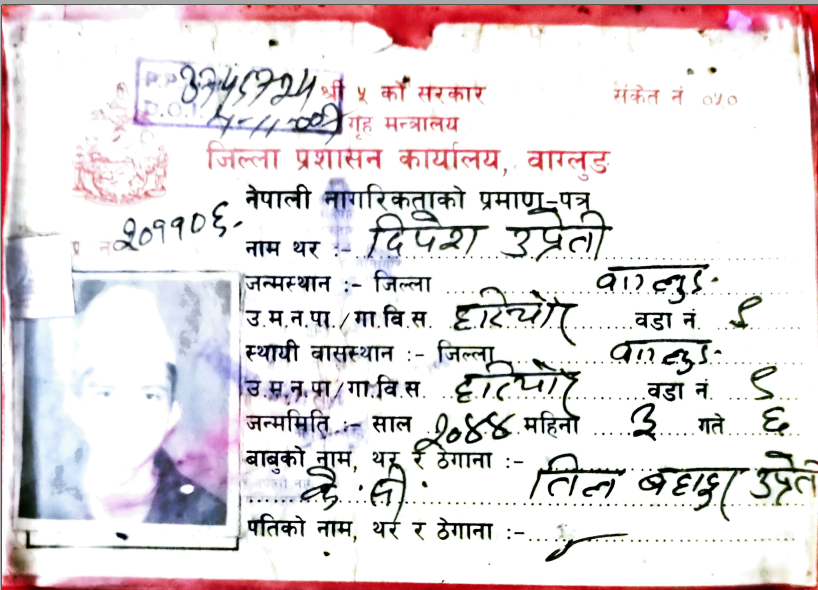 P.P 3745724
श्री ५ को सरकार
संकेत नं ०५०
D.O.I.
गृह मन्त्रालय
जिल्ला प्रशासन कार्यालय, वाग्लुङ
नेपाली नागरिकताको प्रमाण-पत्र
२०११०६
नाम थर :- दिपेश उप्रेती
जन्मस्थान :- जिल्ला वाग्लुङ
उ.म.न.पा./गा.वि.स. हटियागोर वडा नं. ९
स्थायी वासस्थान :- जिल्ला वाग्लुङ
उ.म.न.पा/गा.वि.स. वडा नं. ९
जन्ममिति :- साल २०४४ महिना ३ गते ६
बाबुको नाम, थर र ठेगाना :-
तिल बहादुर उप्रेती
पतिको नाम, थर र ठेगाना :-